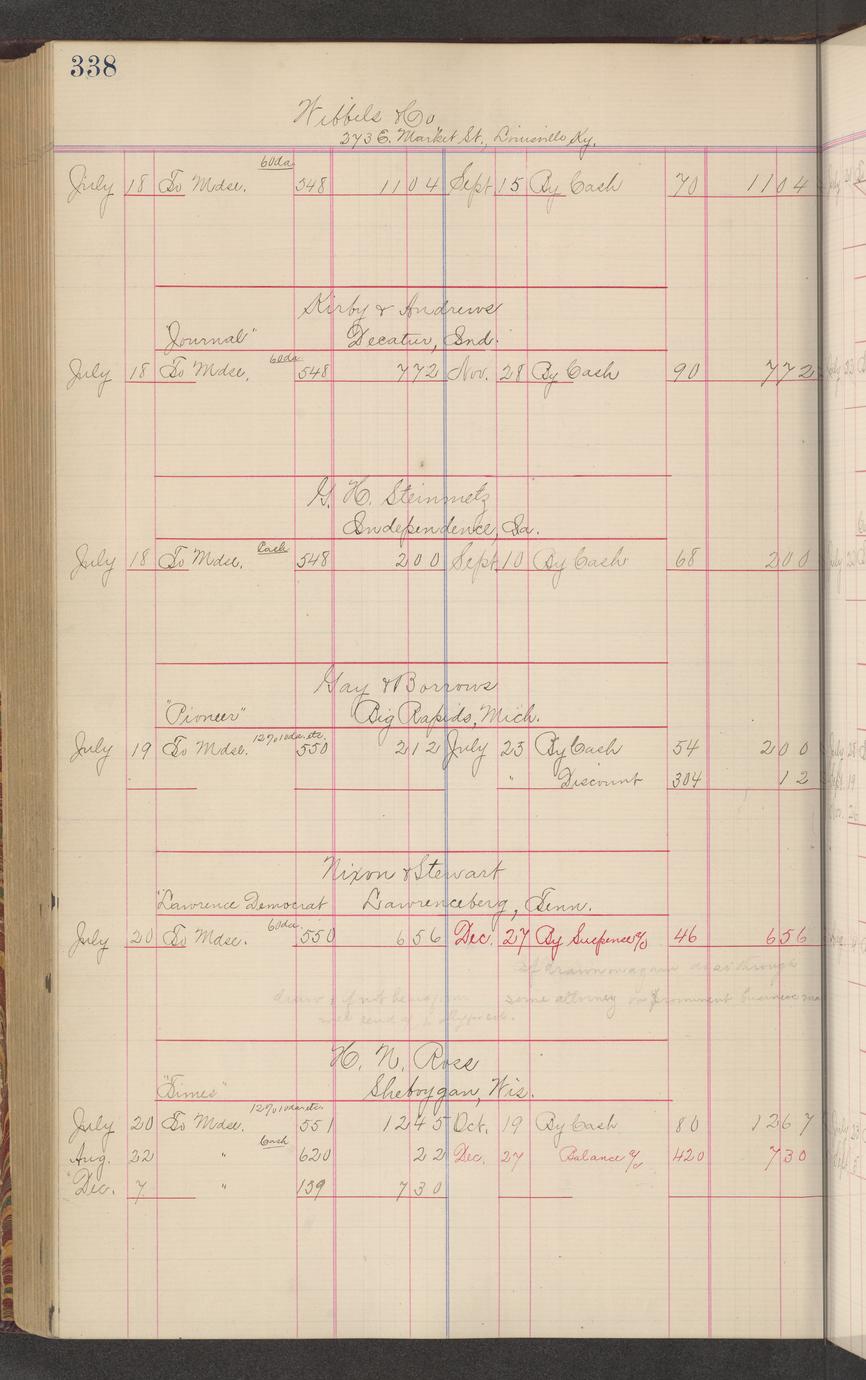 338
Wibbels & Co
273 E. Market St., Louisville Ky.
60da
July 18 To Mdse. 548 1104 Sept. 15 By Cash 70 1104
Kirby & Andrews
"Journal" Decatur, Ind.
60da.
July 18 To Mdse. 548 772 Nov. 28 By Cash 90 772
G. H. Steinmetz
Independence, Ia.
Cash
July 18 To Mdse. 548 200 Sept. 10 By Cash 68 200
Gay & Borrows
"Pioneer" Big Rapids, Mich.
July 19 To Mdse. 550 212 July 23 By Cash 54 200
" Discount 304 12
Nixon & Stewart
"Lawrence Democrat Lawrenceberg, Tenn.
60da.
July 20 To Mdse. 550 656 Dec. 27 By Suspense a/c 46 656
If drawn on again do so through
draw if not
some attorney or prominent business
H. N. Ross
"Times" Sheboygan, Wis.
July 20 To Mdse. 551 1245 Oct. 19 By Cash 80 1267
Cash
Aug. 22 " 620 22 Dec. 27 Balance a/c 420 730
Dec. 7 " 139 730